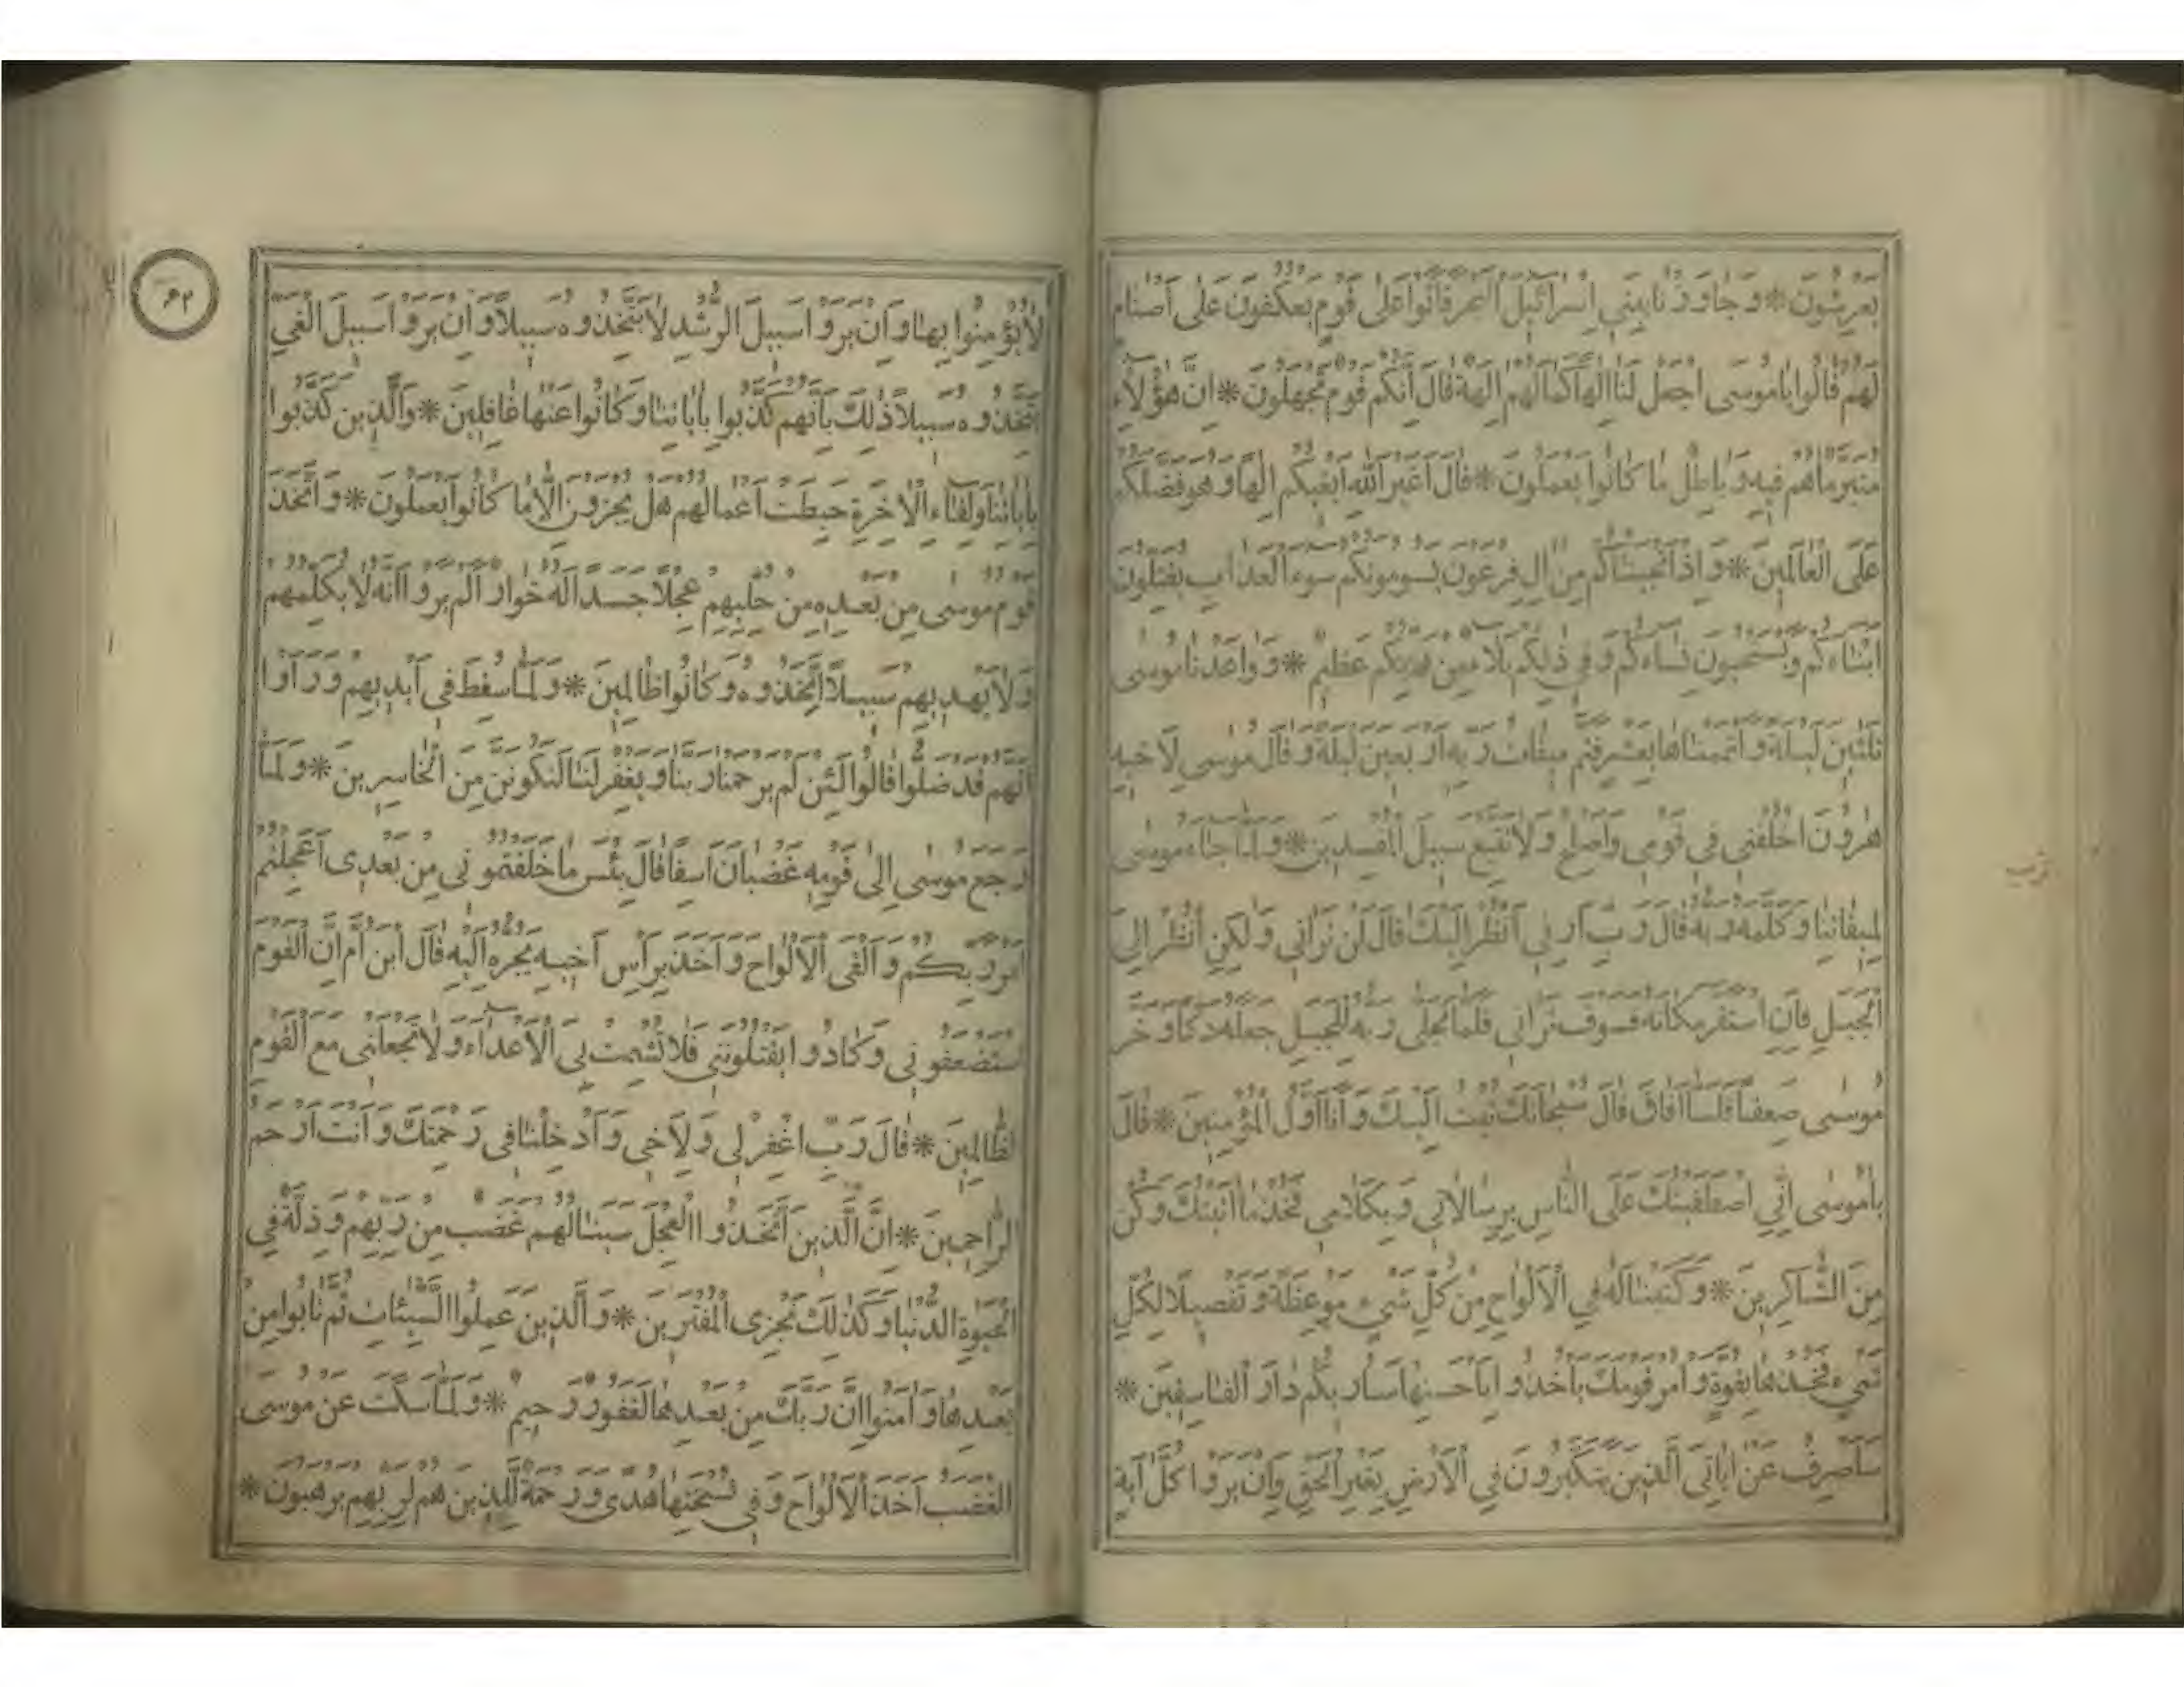 يعرشون * وجاوزنا ببني اسرائيل البحر فاتوا على قوم يعكفون على اصنام
لهم قالوا ياموسى اجعل لنا الها كما لهم الهة قال انكم قوم تجهلون * ان هؤلاء
متبر ماهم فيه وباطل ما كانوا يعملون * قال اغير الله ابغيكم الها وهو فضلكم
على العالمين * واذ انجيناكم من ال فرعون يسومونكم سوء العذاب يقتلون
ابناءكم ويستحيون نساءكم وفي ذلكم بلاء من ربكم عظيم * وواعدنا موسى
ثلثين ليلة واتممناها بعشر فتم ميقات ربه اربعين ليلة وقال موسى لاخيه
هرون اخلفني في قومي واصلح ولا تتبع سبيل المفسدين * ولما جاء موسى
لميقاتنا وكلمه ربه قال رب ارني انظر اليك قال لن تراني ولكن انظر الى
الجبل فان استقر مكانه فسوف تراني فلما تجلى ربه للجبل جعله دكا وخر
موسى صعقا فلما افاق قال سبحانك تبت اليك وانا اول المؤمنين * قال
ياموسى اني اصطفيتك على الناس برسالاتي وبكلامي فخذ ما اتيتك وكن
من الشاكرين * وكتبنا له في الالواح من كل شيء موعظة وتفصيلا لكل
شيء فخذها بقوة وامر قومك ياخذوا باحسنها ساريكم دار الفاسقين *
ساصرف عن اياتي الذين يتكبرون في الارض بغير الحق وان يروا كل اية
لا يؤمنوا بها وان يروا سبيل الرشد لا يتخذوه سبيلا وان يروا سبيل الغي
يتخذوه سبيلا ذلك بانهم كذبوا باياتنا وكانوا عنها غافلين * والذين كذبوا
باياتنا ولقاء الاخرة حبطت اعمالهم هل يجزون الا ما كانوا يعملون * واتخذ
قوم موسى من بعده من حليهم عجلا جسدا له خوار الم يروا انه لا يكلمهم
ولا يهديهم سبيلا اتخذوه وكانوا ظالمين * ولما سقط في ايديهم وراوا
انهم قد ضلوا قالوا لئن لم يرحمنا ربنا ويغفر لنا لنكونن من الخاسرين * ولما
رجع موسى الى قومه غضبان اسفا قال بئس ما خلفتموني من بعدى اعجلتم
امر ربكم والقى الالواح واخذ براس اخيه يجره اليه قال ابن ام ان القوم
استضعفوني وكادوا يقتلونني فلا تشمت بي الاعداء ولا تجعلني مع القوم
الظالمين * قال رب اغفر لي ولاخي وادخلنا في رحمتك وانت ارحم
الراحمين * ان الذين اتخذوا العجل سينالهم غضب من ربهم وذلة في
الحيوة الدنيا وكذلك نجزى المفترين * والذين عملوا السيئات ثم تابوا من
بعدها وامنوا ان ربك من بعدها لغفور رحيم * ولما سكت عن موسى
الغضب اخذ الالواح وفي نسختها هدى ورحمة للذين هم لربهم يرهبون *